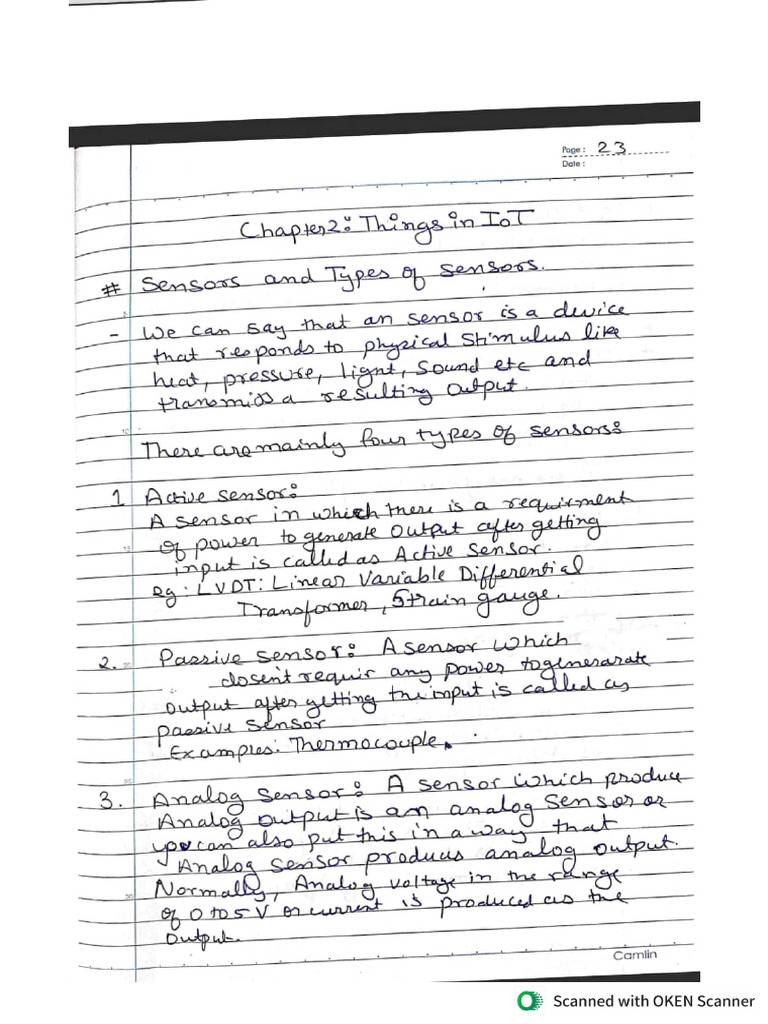 Page: 23
Date:
Chapter2: Things in IoT
# Sensors and Types of sensors.
- We can say that an sensor is a device
that responds to physical Stimulus like
heat, pressure, light, Sound etc and
transmits a resulting output.
There are mainly four types of sensors:
1 Active sensor:
A sensor in which there is a requirment
of power to generate output after getting
input is called as Active sensor.
eg: LVDT: Linear Variable Differential
Transformer, Strain gauge.
2. Passive sensor: A sensor which
dosent requir any power to generarate
output after getting the input is called as
passive sensor
Examples: Thermocouple.
3. Analog sensor: A sensor which produce
Analog output is an analog sensor or
you can also put this in a way that
Analog sensor produces analog output.
Normally, Analog voltage in the range
of 0 to 5 V or current is produced as the
output.
Camlin
Scanned with OKEN Scanner